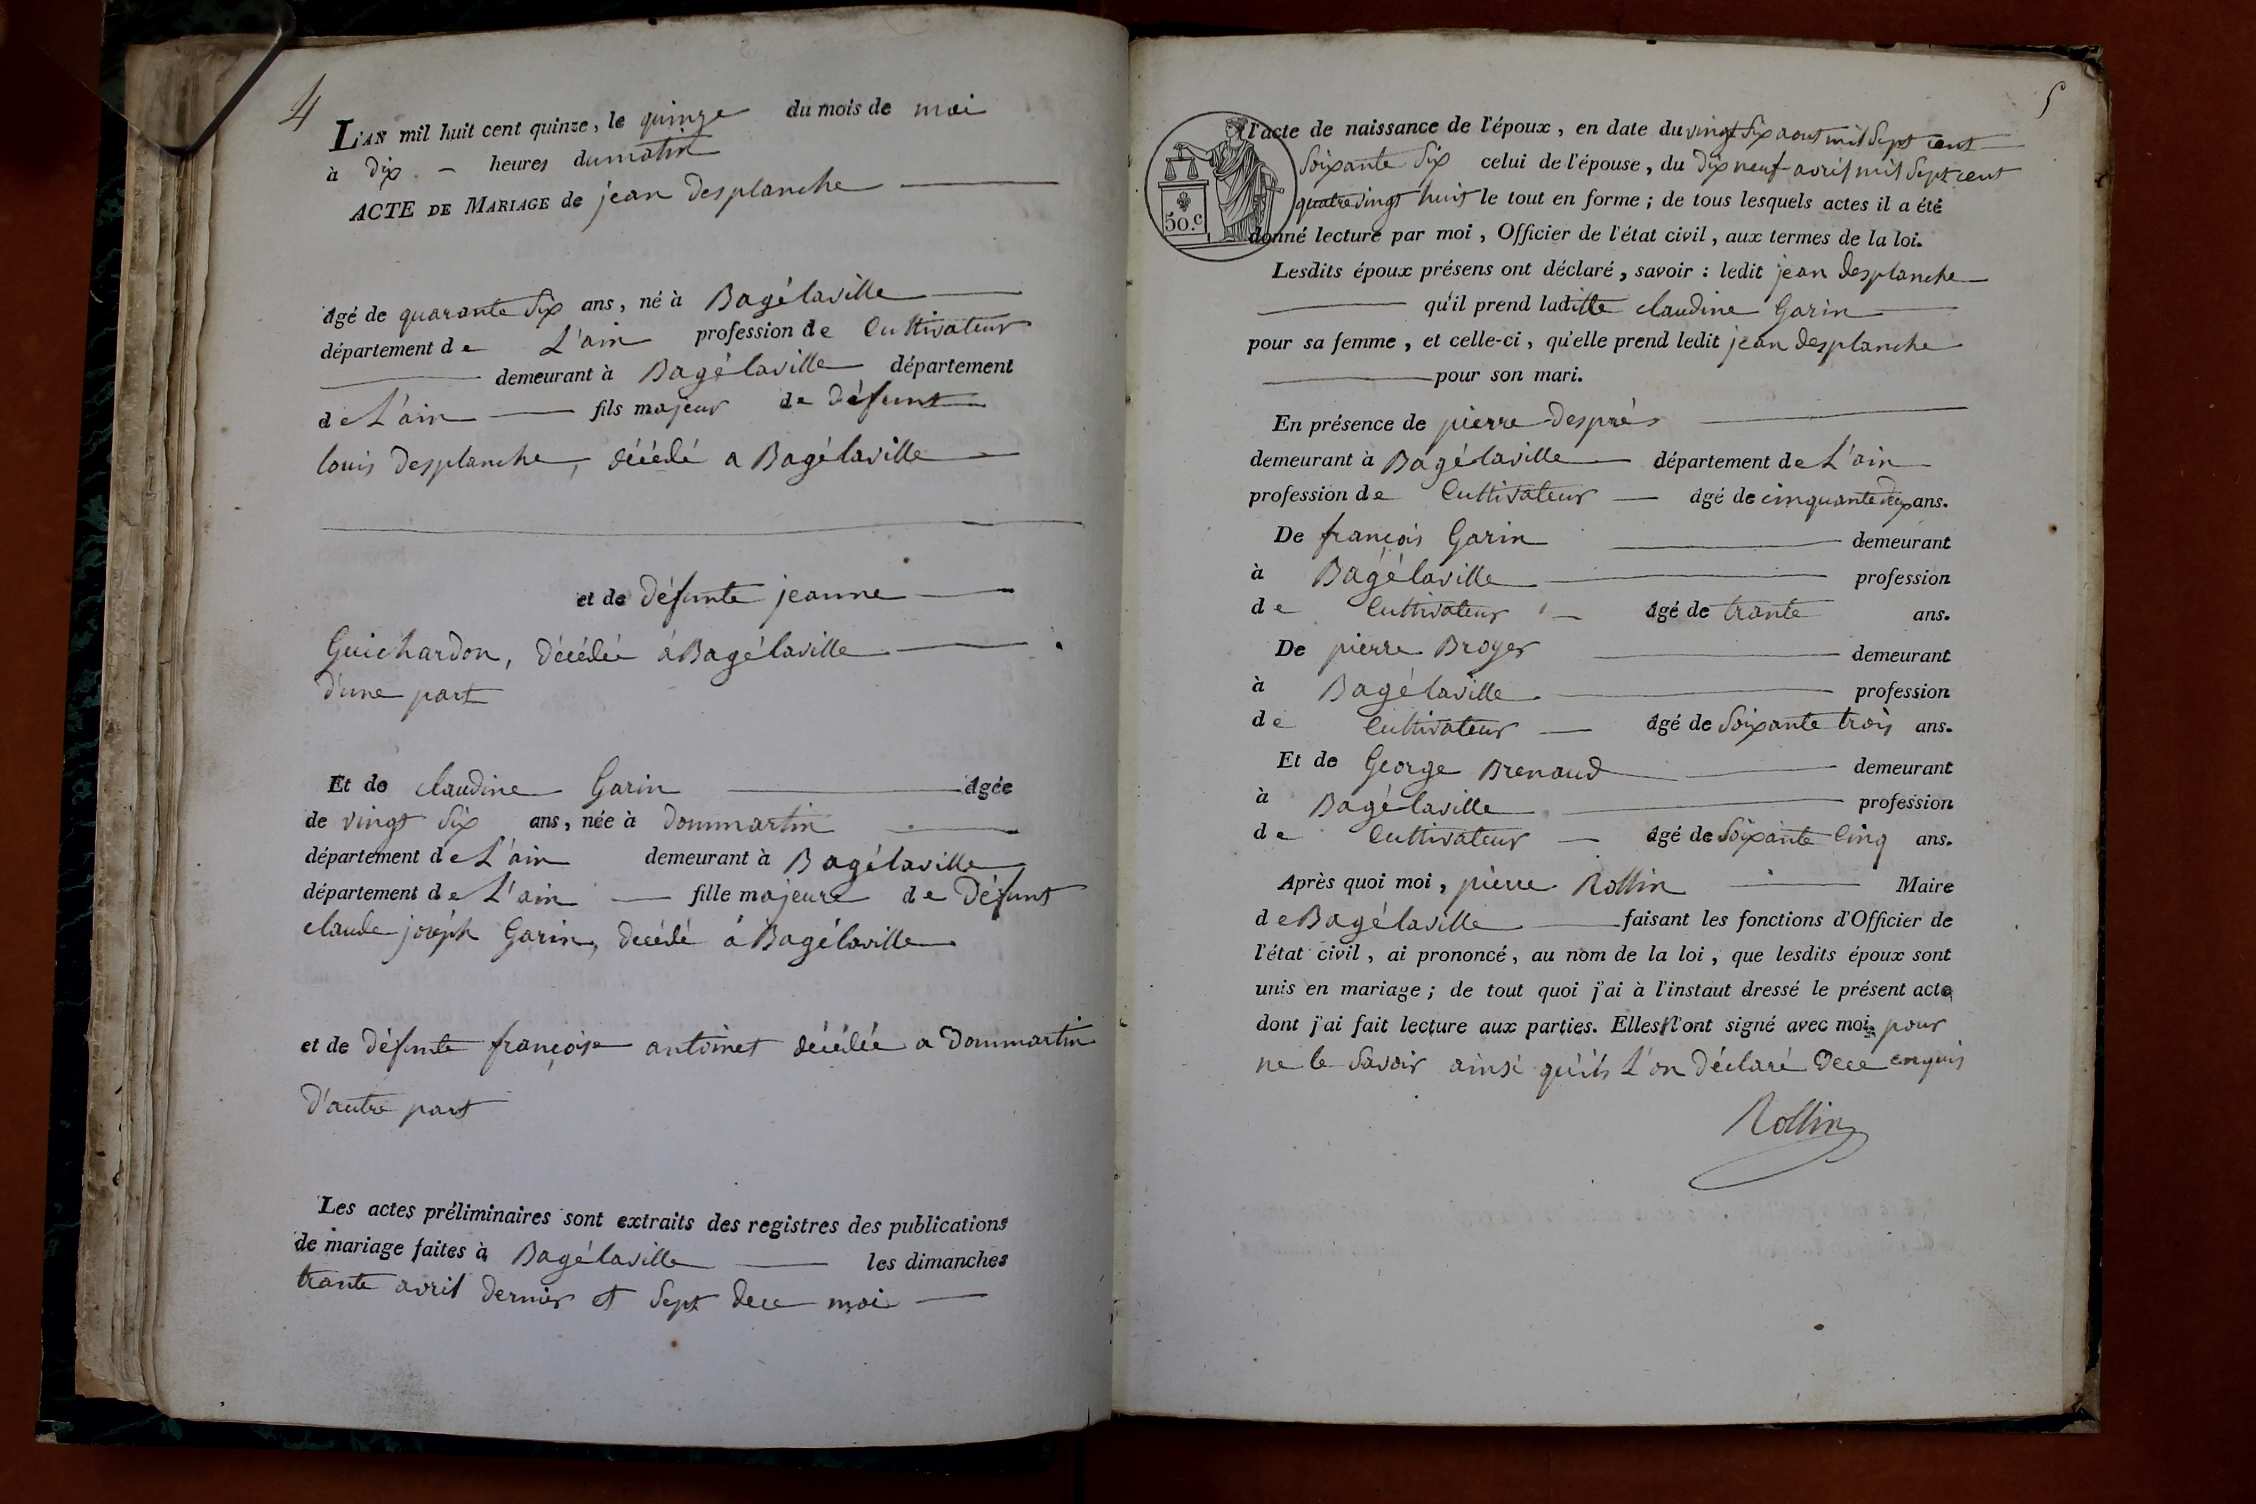 4
L'AN mil huit cent quinze, le quinze du mois de mai
à dix heures du matin
ACTE DE MARIAGE de jean desplanche
âgé de quarante Six ans, né à Bagélaville
département de L'ain profession de Cultivateur
demeurant à Bagélaville département
de L'ain fils majeur de défunt
louis desplanche, décédé a Bagélaville
et de défunte jeanne
Guichardon, décédée á Bagélaville
d'une part
Et de claudine Garin âgée
de vingt Six ans, née à dommartin
département de L'ain demeurant à Bagélaville
département de L'ain fille majeure de défunt
claude joséph Garin, decédé á Bagélaville
et de défunte françoise antoinet décédée a dommartin
D'autre part
Les actes préliminaires sont extraits des registres des publications
de mariage faites à Bagélaville les dimanches
trante avril dernier et Sept dece moi
5
50.c
l'acte de naissance de l'époux, en date du vingt Six aout mil Sept cent
Soixante Six celui de l'épouse, du dix neuf avril mil Sept cent
quatre vingt huit le tout en forme; de tous lesquels actes il a été
donné lecture par moi, Officier de l'état civil, aux termes de la loi.
Lesdits époux présens ont déclaré, savoir : ledit jean desplanche
qu'il prend laditte claudine Garin
pour sa femme, et celle-ci, qu'elle prend ledit jean desplanche
pour son mari.
En présence de pierre després
demeurant à Bagélaville département de L'ain
profession de Cultivateur âgé de cinquante ans.
De françois Garin demeurant
à Bagélaville profession
de Cultivateur âgé de trante ans.
De pierre Broyer demeurant
à Bagélaville profession
de Cultivateur âgé de Soixante trois ans.
Et de George Brenaud demeurant
à Bagélaville profession
de Cultivateur âgé de Soixante Cinq ans.
Après quoi moi, pierre Rollin Maire
de Bagélaville faisant les fonctions d'Officier de
l'état civil, ai prononcé, au nom de la loi, que lesdits époux sont
unis en mariage; de tout quoi j'ai à l'instaut dressé le présent acte
dont j'ai fait lecture aux parties. Elles n'ont signé avec moi pour
ne le Savoir ainsi qu'ils L'on déclaré dece enquis
Rollin